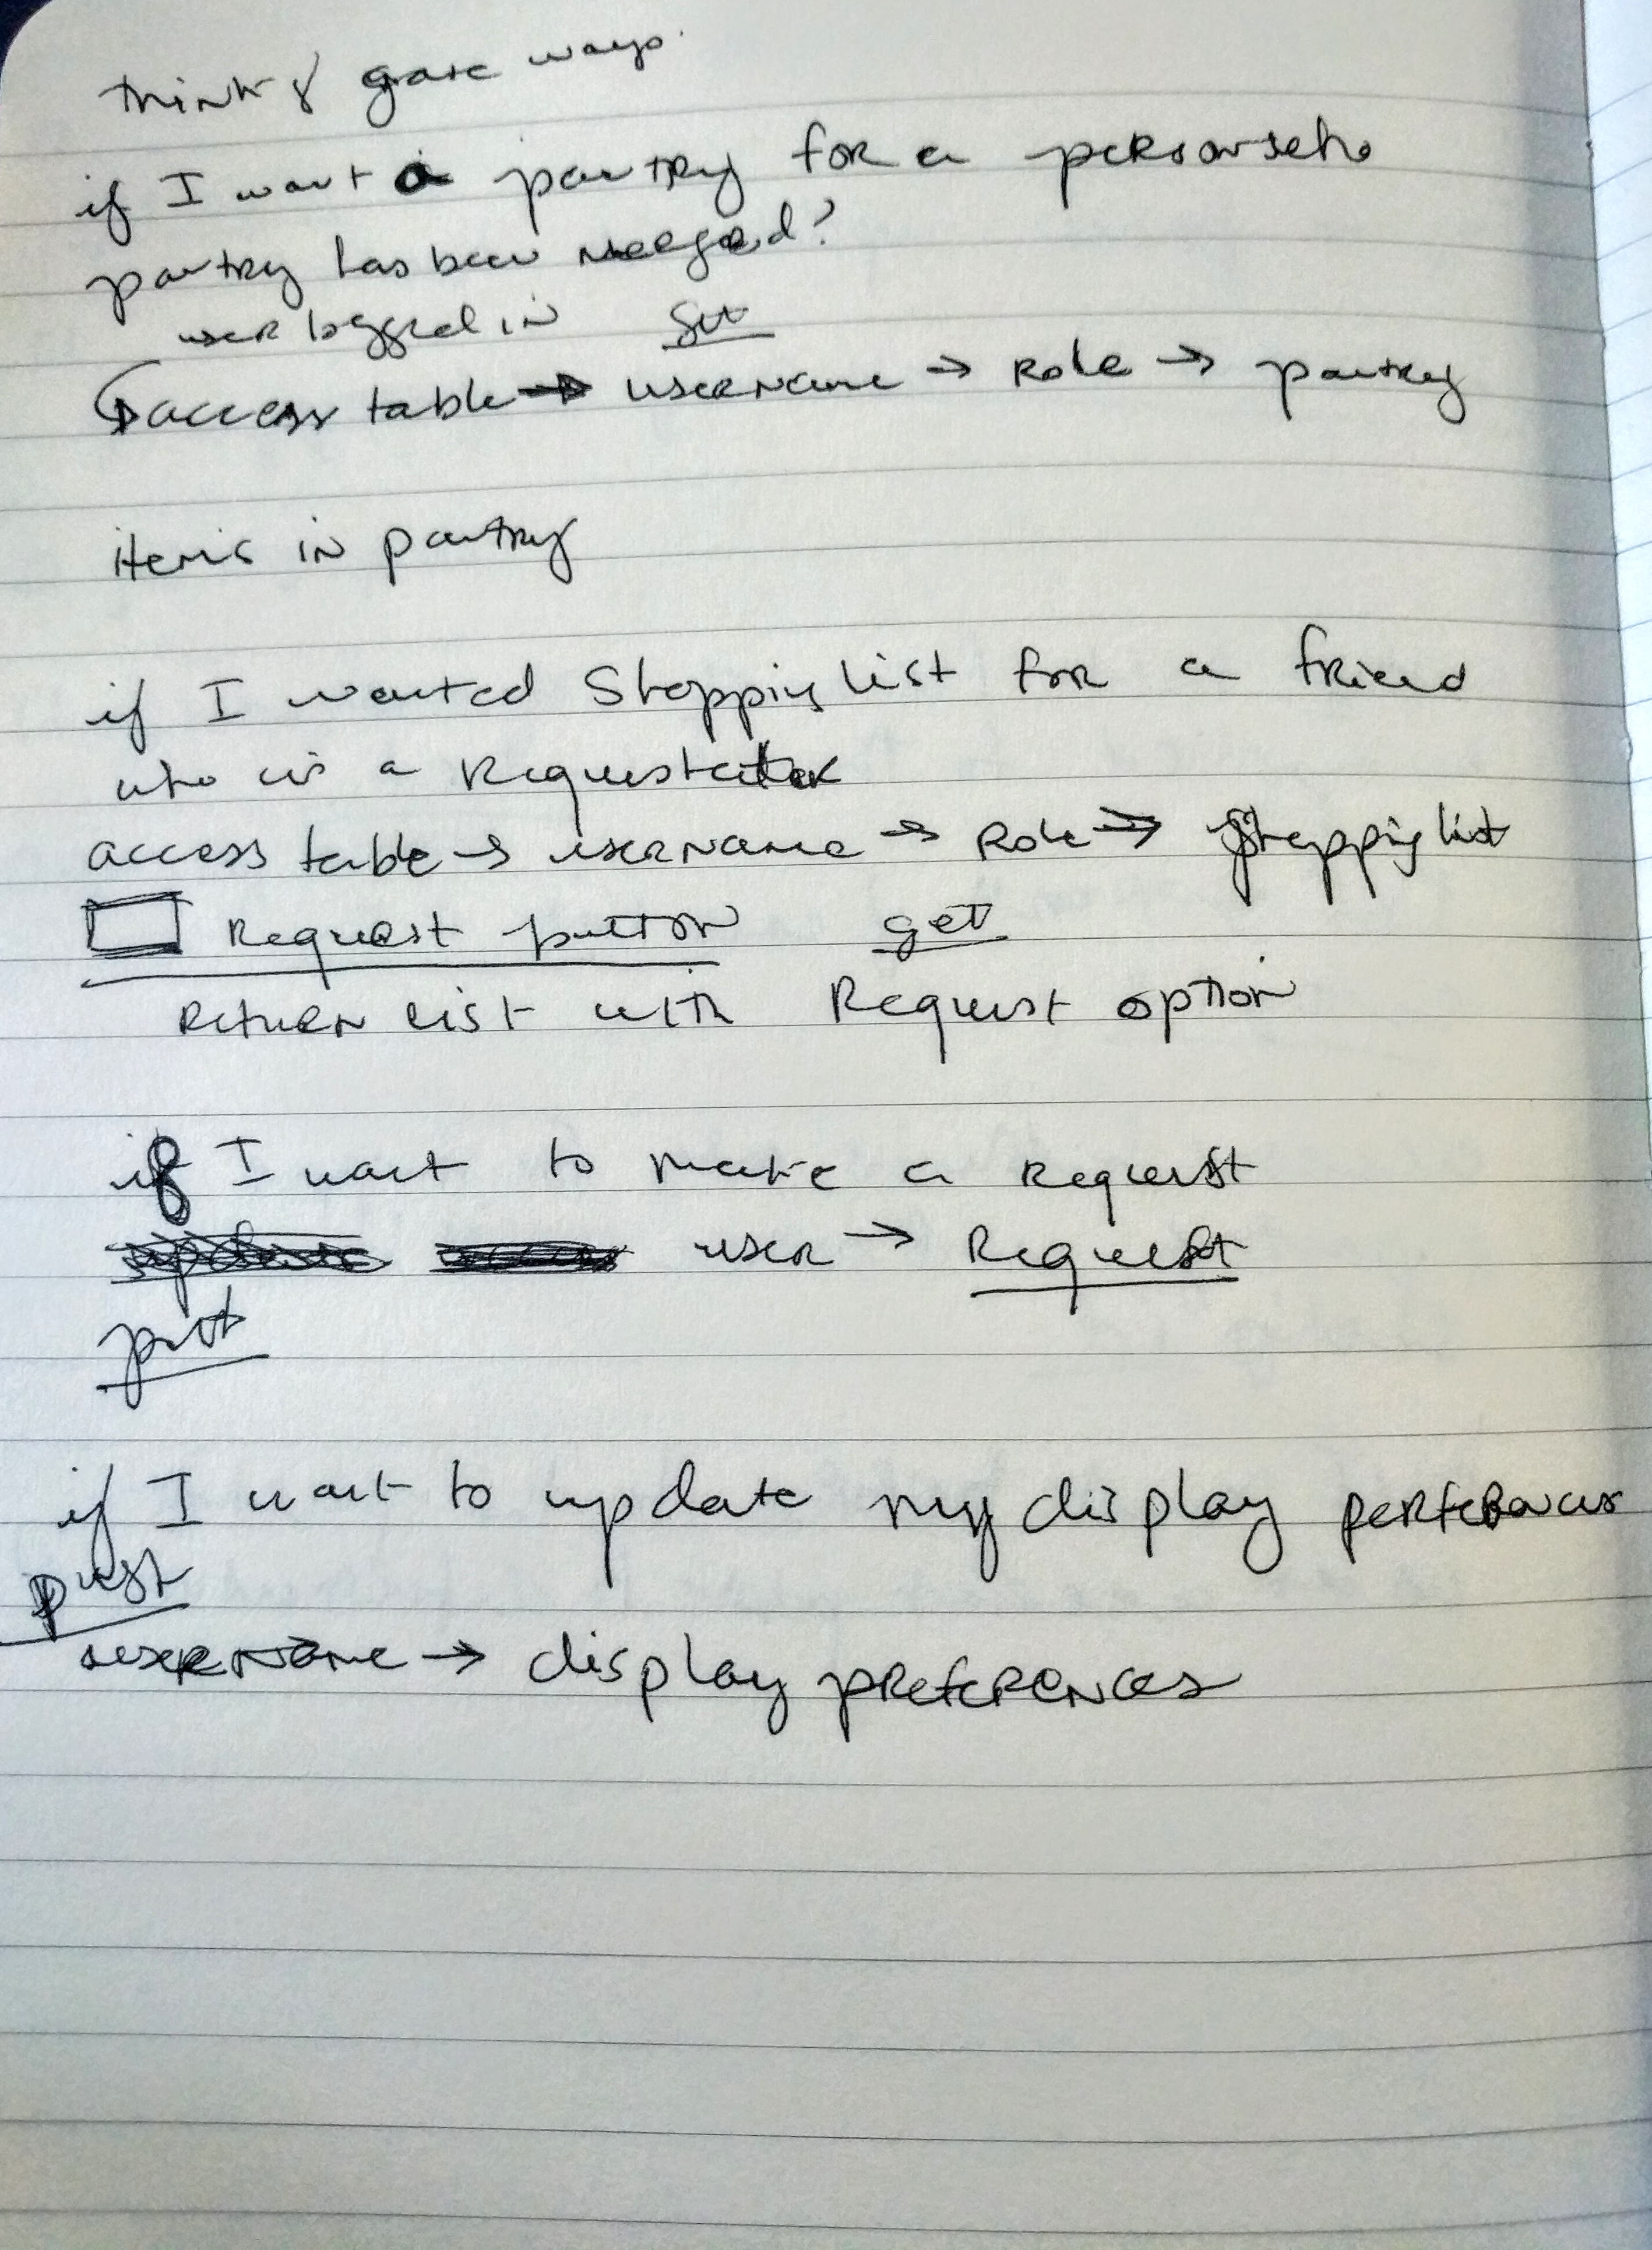 think of ways
if I want a pantry for a person who
pantry has been merged?
user logged in get
access table → username → Role → pantry
items in pantry
if I wanted Shopping list for a friend
who is a Requester
access table → username → Role → Shopping list
Request button get
Return list with Request option
if I want to make a Request
user → Request
put
if I want to update my display perferences
post
username → display preferences